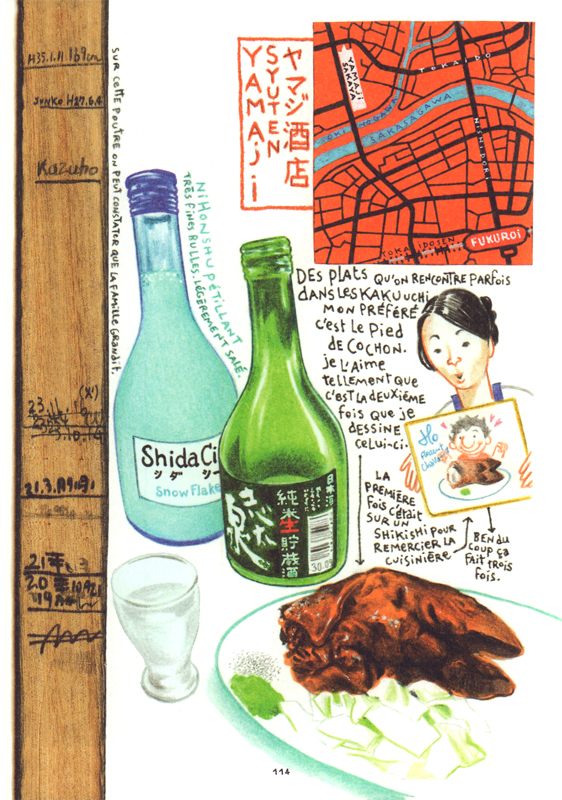 H35.1.11 169cm
JUNKO H27.6.4
Kazuho
SUR CETTE POUTRE ON PEUT CONSTATER QUE LA FAMILLE GRANDIT.
ヤマジ酒店
SYUTEN
YAMAji
YAMAJI SAKAYA
TOKAIDO
SAKASAGAWA
NISHIDORI
TOKAIDOSEN
FUKUROi
NiHONSHU PÉTiLLANT
TRÈS FiNES BULLES. LÉGÈREMENT SALÉ.
DES PLATS QU'ON RENCONTRE PARFOIS
DANS LES KAKUUCHI
MON PRÉFÉRÉ
c'EST LE PiED
DE COCHON.
JE L'AIME
TELLEMENT QUE
C'EST LA DEUXIÈME
FOIS QUE JE
DESSINE
CELUI-CI.
LA
PREMIÈRE
FOIS C'ÉTAIT
SUR UN
SHIKISHI POUR
REMERCIER LA
CUISINIÈRE
BEN DU
COUP ÇA
FAIT TROIS
FOIS.
ShidaCi
シダシー
Snow Flake
日本酒
純米生貯蔵酒
泉
114